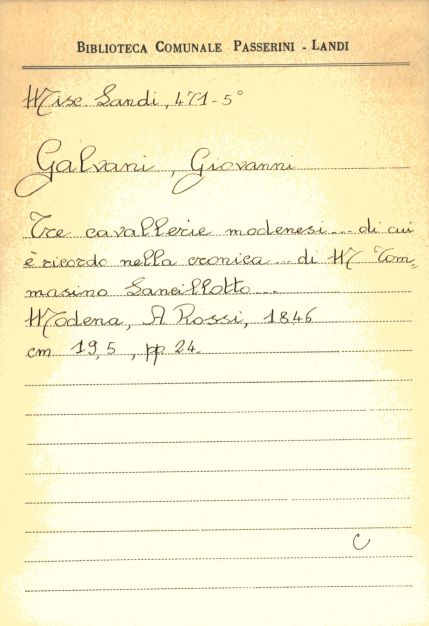 BIBLIOTECA COMUNALE PASSERINI - LANDI
Misc Landi, 471-5°
Galvani, Giovanni
Tre cavallerie modenesi... di cui
è ricordo nella cronica... di M Tom=
masino Lancillotto...
Modena, A Rossi, 1846
cm 19,5, pp 24.
C